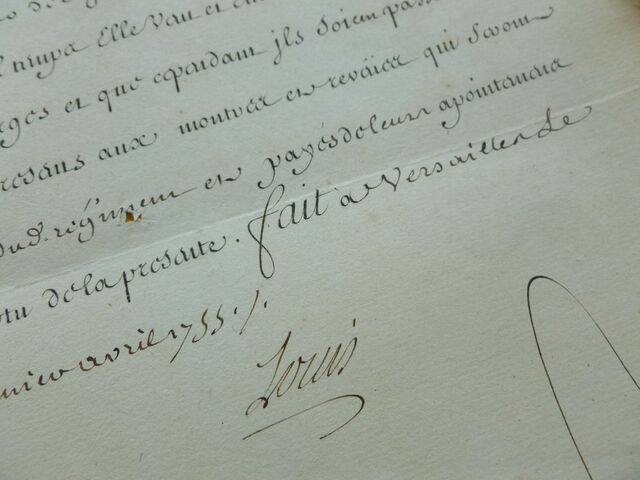 Elle Veut et
et que cependant jls soient
presens aux montres et reveües qui seront
dud. régiment et payés de leurs apointemens
vertu de la presente. fait a Versailles Le
avril 1755./.
Louis